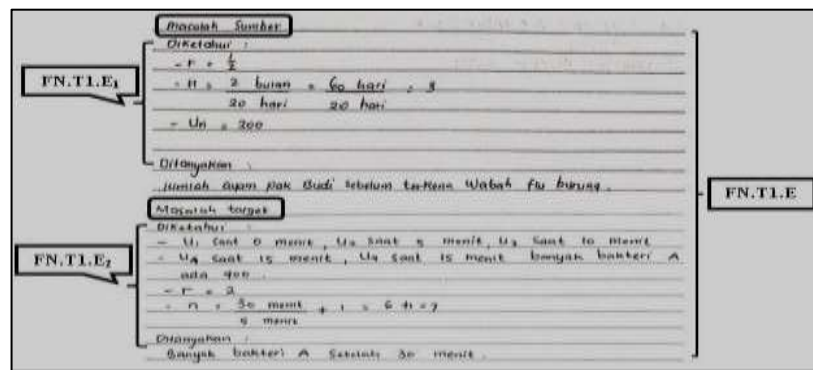 Masalah Sumber
Diketahui :
- r = 1/2
- n = 2 bulan / 20 hari = 60 hari / 20 hari = 3
- Un = 200
Ditanyakan :
Jumlah ayam pak Budi sebelum terkena Wabah flu burung.
Masalah target
Diketahui :
- U1 saat 0 menit, U2 saat 5 menit, U3 saat 10 menit
- U4 saat 15 menit, U4 saat 15 menit banyak bakteri A
ada 400.
- r = 2
- n = 30 menit / 5 menit + 1 = 6 + 1 = 7
Ditanyakan :
Banyak bakteri A setelah 30 menit.
FN.T1.E1
FN.T1.E2
FN.T1.E